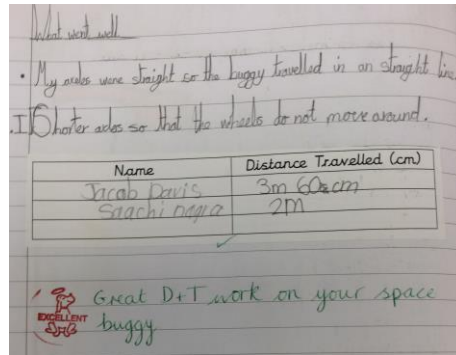 What went well
• My axles were straight so the buggy travelled in an straight line
Shorter axles so that the wheels do not move around.
Name Distance Travelled (cm)
Jacob Davis 3m 60cm
Saachi 2M
EXCELLENT
Great D+T work on your space
buggy